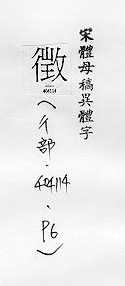 宋體母稿異體字
徵
404114
(彳部.404114.P6)